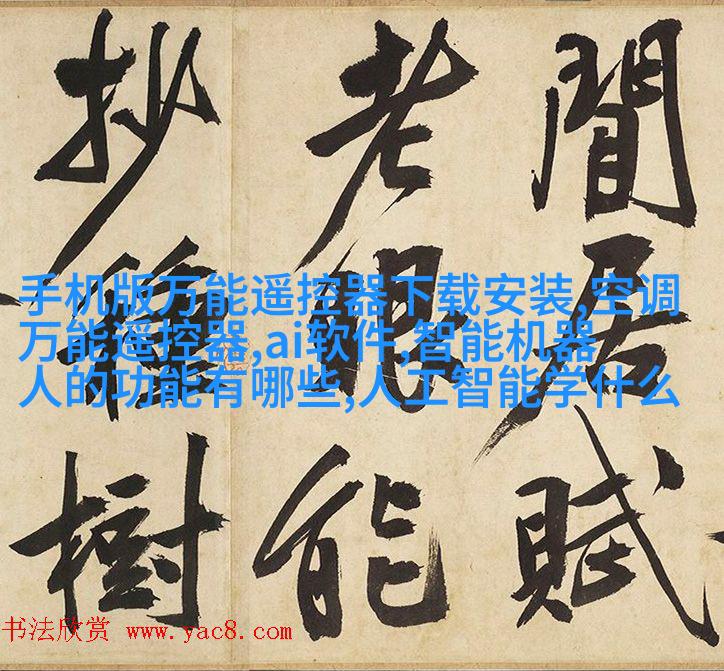 閒居賦
老眼能
抄種樹
手机版万能遥控器下载安装,空调
万能遥控器,ai软件,智能机器
人的功能有哪些,人工智能学什么
书法欣赏 www.yac8.com